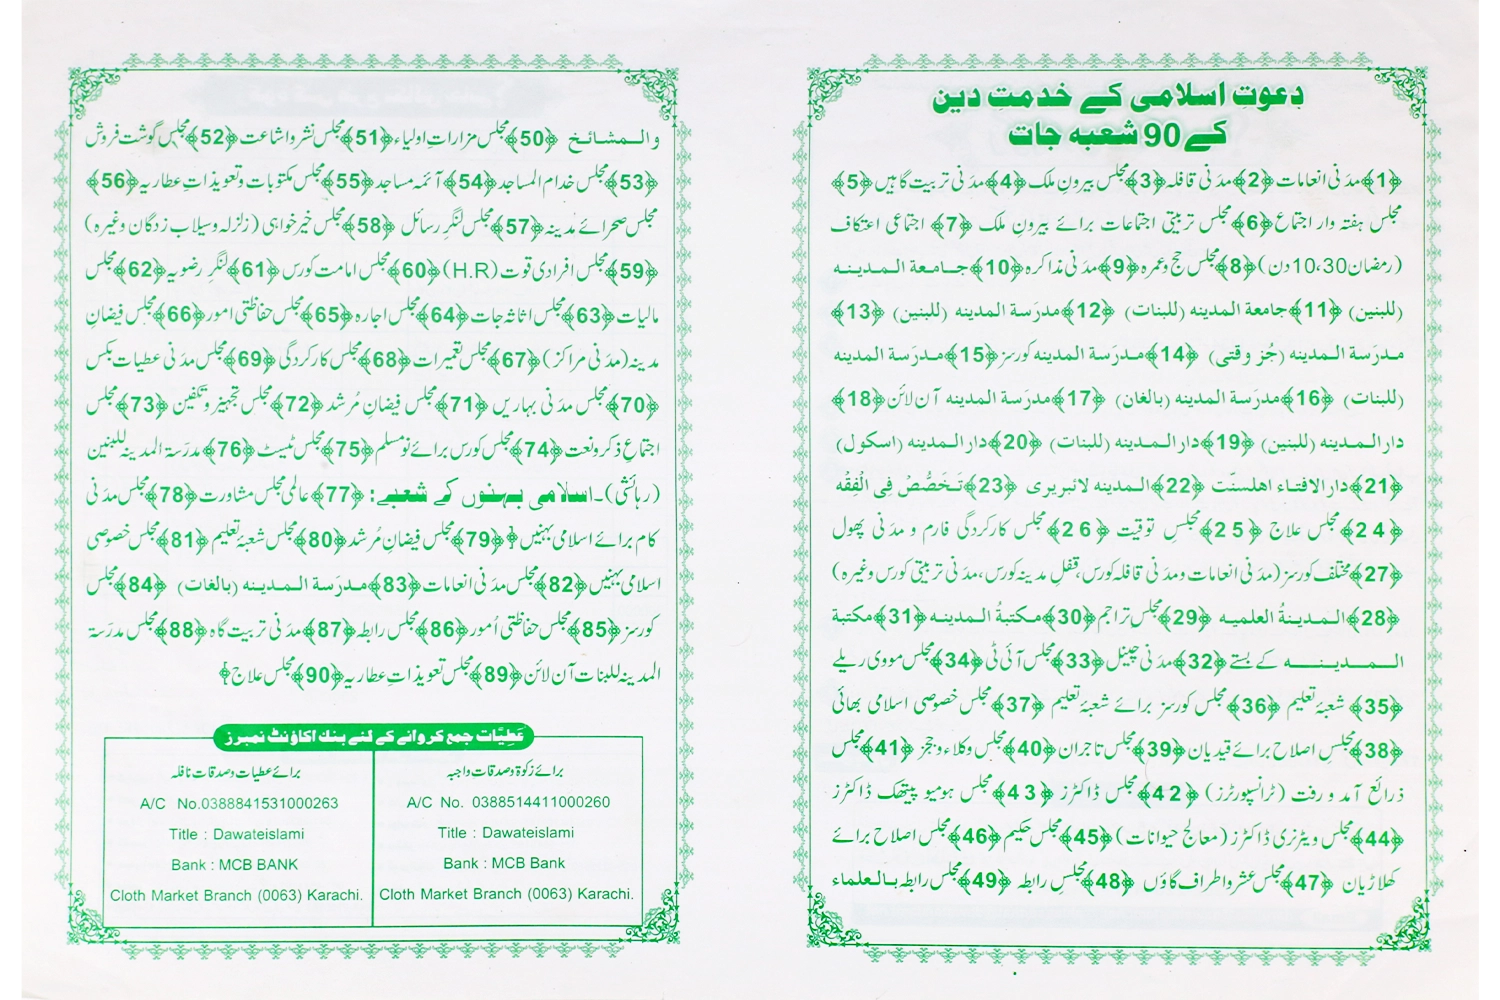 دعوتِ اسلامی کے خدمتِ دین
کے 90 شعبہ جات
﴿1﴾مدنی انعامات ﴿2﴾مدنی قافلہ ﴿3﴾مجلس بیرونِ ملک ﴿4﴾مدنی تربیت گاہیں ﴿5﴾
مجلس ہفتہ وار اجتماع ﴿6﴾مجلس تربیتی اجتماعات برائے بیرونِ ملک ﴿7﴾ اجتماعی اعتکاف
(رمضان 10،30دن) ﴿8﴾مجلس حج وعمرہ ﴿9﴾مدنی مذاکرہ ﴿10﴾جامعۃ المدینہ
(للبنین) ﴿11﴾جامعۃ المدینہ (للبنات) ﴿12﴾مدرَسۃ المدینہ (للبنین) ﴿13﴾
مدرَسۃ المدینہ (جُز وقتی) ﴿14﴾مدرَسۃ المدینہ کورسز ﴿15﴾مدرَسۃ المدینہ
(للبنات) ﴿16﴾مدرَسۃ المدینہ (بالغان) ﴿17﴾مدرَسۃ المدینہ آن لائن ﴿18﴾
دار المدینہ (للبنین) ﴿19﴾دار المدینہ (للبنات) ﴿20﴾دار المدینہ (اسکول)
﴿21﴾دار الافتاء اھلسنّت ﴿22﴾المدینہ لائبریری ﴿23﴾تَخَصُّصْ فِی الْفِقْہ
﴿24﴾مجلس علاج ﴿25﴾مجلسِ توقیت ﴿26﴾مجلس کارکردگی فارم و مدنی پھول
﴿27﴾مختلف کورسز (مدنی انعامات ومدنی قافلہ کورس، قفلِ مدینہ کورس، مدنی تربیتی کورس وغیرہ)
﴿28﴾المدینۃُ العلمیہ ﴿29﴾مجلس تراجم ﴿30﴾مکتبۃُ المدینہ ﴿31﴾مکتبۃ
المدینہ کے بستے ﴿32﴾مدنی چینل ﴿33﴾مجلس آئی ٹی ﴿34﴾مجلس مووی ریلے
﴿35﴾ شعبۂ تعلیم ﴿36﴾مجلس کورسز برائے شعبۂ تعلیم ﴿37﴾مجلس خصوصی اسلامی بھائی
﴿38﴾مجلسِ اصلاح برائے قیدیان ﴿39﴾مجلس تاجران ﴿40﴾مجلس وکلاء وججز ﴿41﴾مجلس
ذرائع آمد و رفت (ٹرانسپورٹرز) ﴿42﴾مجلس ڈاکٹرز ﴿43﴾مجلس ہومیو پیتھک ڈاکٹرز
﴿44﴾مجلس ویٹرنری ڈاکٹرز (معالج حیوانات) ﴿45﴾مجلس حکیم ﴿46﴾مجلس اصلاح برائے
کھلاڑیان ﴿47﴾مجلس عشر واطراف گاؤں ﴿48﴾مجلسِ رابطہ ﴿49﴾مجلس رابطہ بالعلماء
والمشائخ ﴿50﴾مجلس مزاراتِ اولیاء ﴿51﴾مجلس نشرواشاعت ﴿52﴾مجلس گوشت فروش
﴿53﴾مجلس خدام المساجد ﴿54﴾ آئمہ مساجد ﴿55﴾مجلس مکتوبات و تعویذاتِ عطاریہ ﴿56﴾
مجلس صحرائے مدینہ ﴿57﴾مجلس لنگرِ رسائل ﴿58﴾مجلس خیر خواہی (زلزلہ وسیلاب زدگان وغیرہ)
﴿59﴾مجلس افرادی قوت (H.R) ﴿60﴾مجلس امامت کورس ﴿61﴾لنگرِ رضویہ ﴿62﴾مجلس
مالیات ﴿63﴾مجلس اثاثہ جات ﴿64﴾مجلس اجارہ ﴿65﴾مجلس حفاظتی امور ﴿66﴾مجلس فیضانِ
مدینہ (مدنی مراکز) ﴿67﴾مجلس تعمیرات ﴿68﴾مجلس کارکردگی ﴿69﴾مجلس مدنی عطیات بکس
﴿70﴾مجلس مدنی بہاریں ﴿71﴾مجلس فیضانِ مُرشد ﴿72﴾مجلس تجہیز و تکفین ﴿73﴾مجلس
اجتماعِ ذکر ونعت ﴿74﴾مجلس کورس برائے نومسلم ﴿75﴾مجلس ٹیسٹ ﴿76﴾مدرَسۃ المدینہ للبنین
(رہائشی)۔ اسلامی بہنوں کے شعبے: ﴿77﴾عالمی مجلس مشاورت ﴿78﴾مجلس مدنی
کام برائے اسلامی بہنیں ﴿79﴾مجلس فیضانِ مُرشد ﴿80﴾مجلس شعبۂ تعلیم ﴿81﴾مجلس خصوصی
اسلامی بہنیں ﴿82﴾مجلس مدنی انعامات ﴿83﴾مدرَسۃ المدینہ (بالغات) ﴿84﴾مجلس
کورسز ﴿85﴾مجلس حفاظتی اُمور ﴿86﴾مجلس رابطہ ﴿87﴾مدنی تربیت گاہ ﴿88﴾مجلس مدرسۃ
المدینہ للبنات آن لائن ﴿89﴾مجلس تعویذاتِ عطاریہ ﴿90﴾مجلس علاج
عَطِیَّات جمع کروانے کے لئے بینک اکاؤنٹ نمبرز
برائے زکوٰۃ وصدقات واجبہ
A/C No. 0388514411000260
Title : Dawateislami
Bank : MCB Bank
Cloth Market Branch (0063) Karachi.
برائے عطیات وصدقات نافلہ
A/C No.0388841531000263
Title : Dawateislami
Bank : MCB BANK
Cloth Market Branch (0063) Karachi.